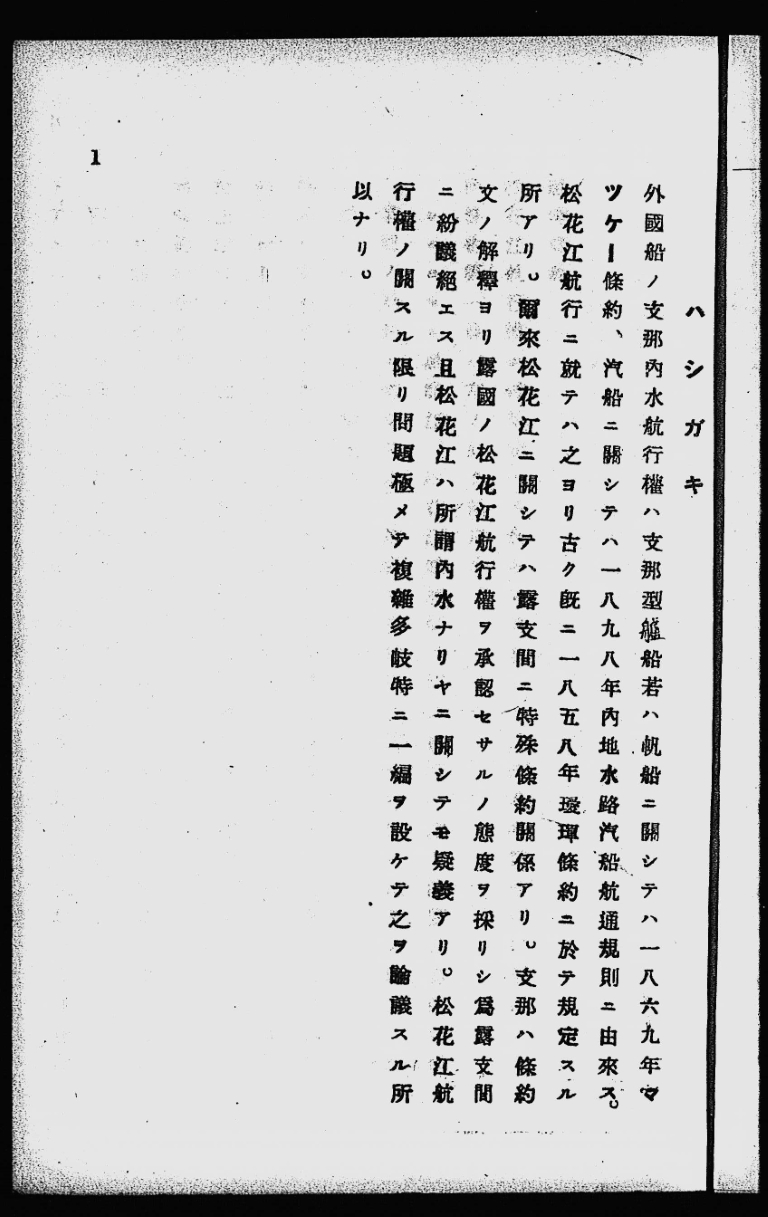 ハシガキ
外國船ノ支那內水航行權ハ支那型艫船若ハ帆船ニ關シテハ一八六九年マ
ツケー條約、汽船ニ關シテハ一八九八年內地水路汽船航通規則ニ由來ス。
松花江航行ニ就テハ之ヨリ古ク既ニ一八五八年璦琿條約ニ於テ規定スル
所アリ。爾來松花江ニ關シテハ露支間ニ特殊條約關係アリ。支那ハ條約
文ノ解釋ヨリ露國ノ松花江航行權ヲ承認セサルノ態度ヲ採リシ爲露支間
ニ紛議絕エス且松花江ハ所謂內水ナリヤニ關シテモ疑義アリ。松花江航
行權ノ關スル限リ問題極メテ複雜多岐特ニ一編ヲ設ケテ之ヲ論議スル所
以ナリ。
1